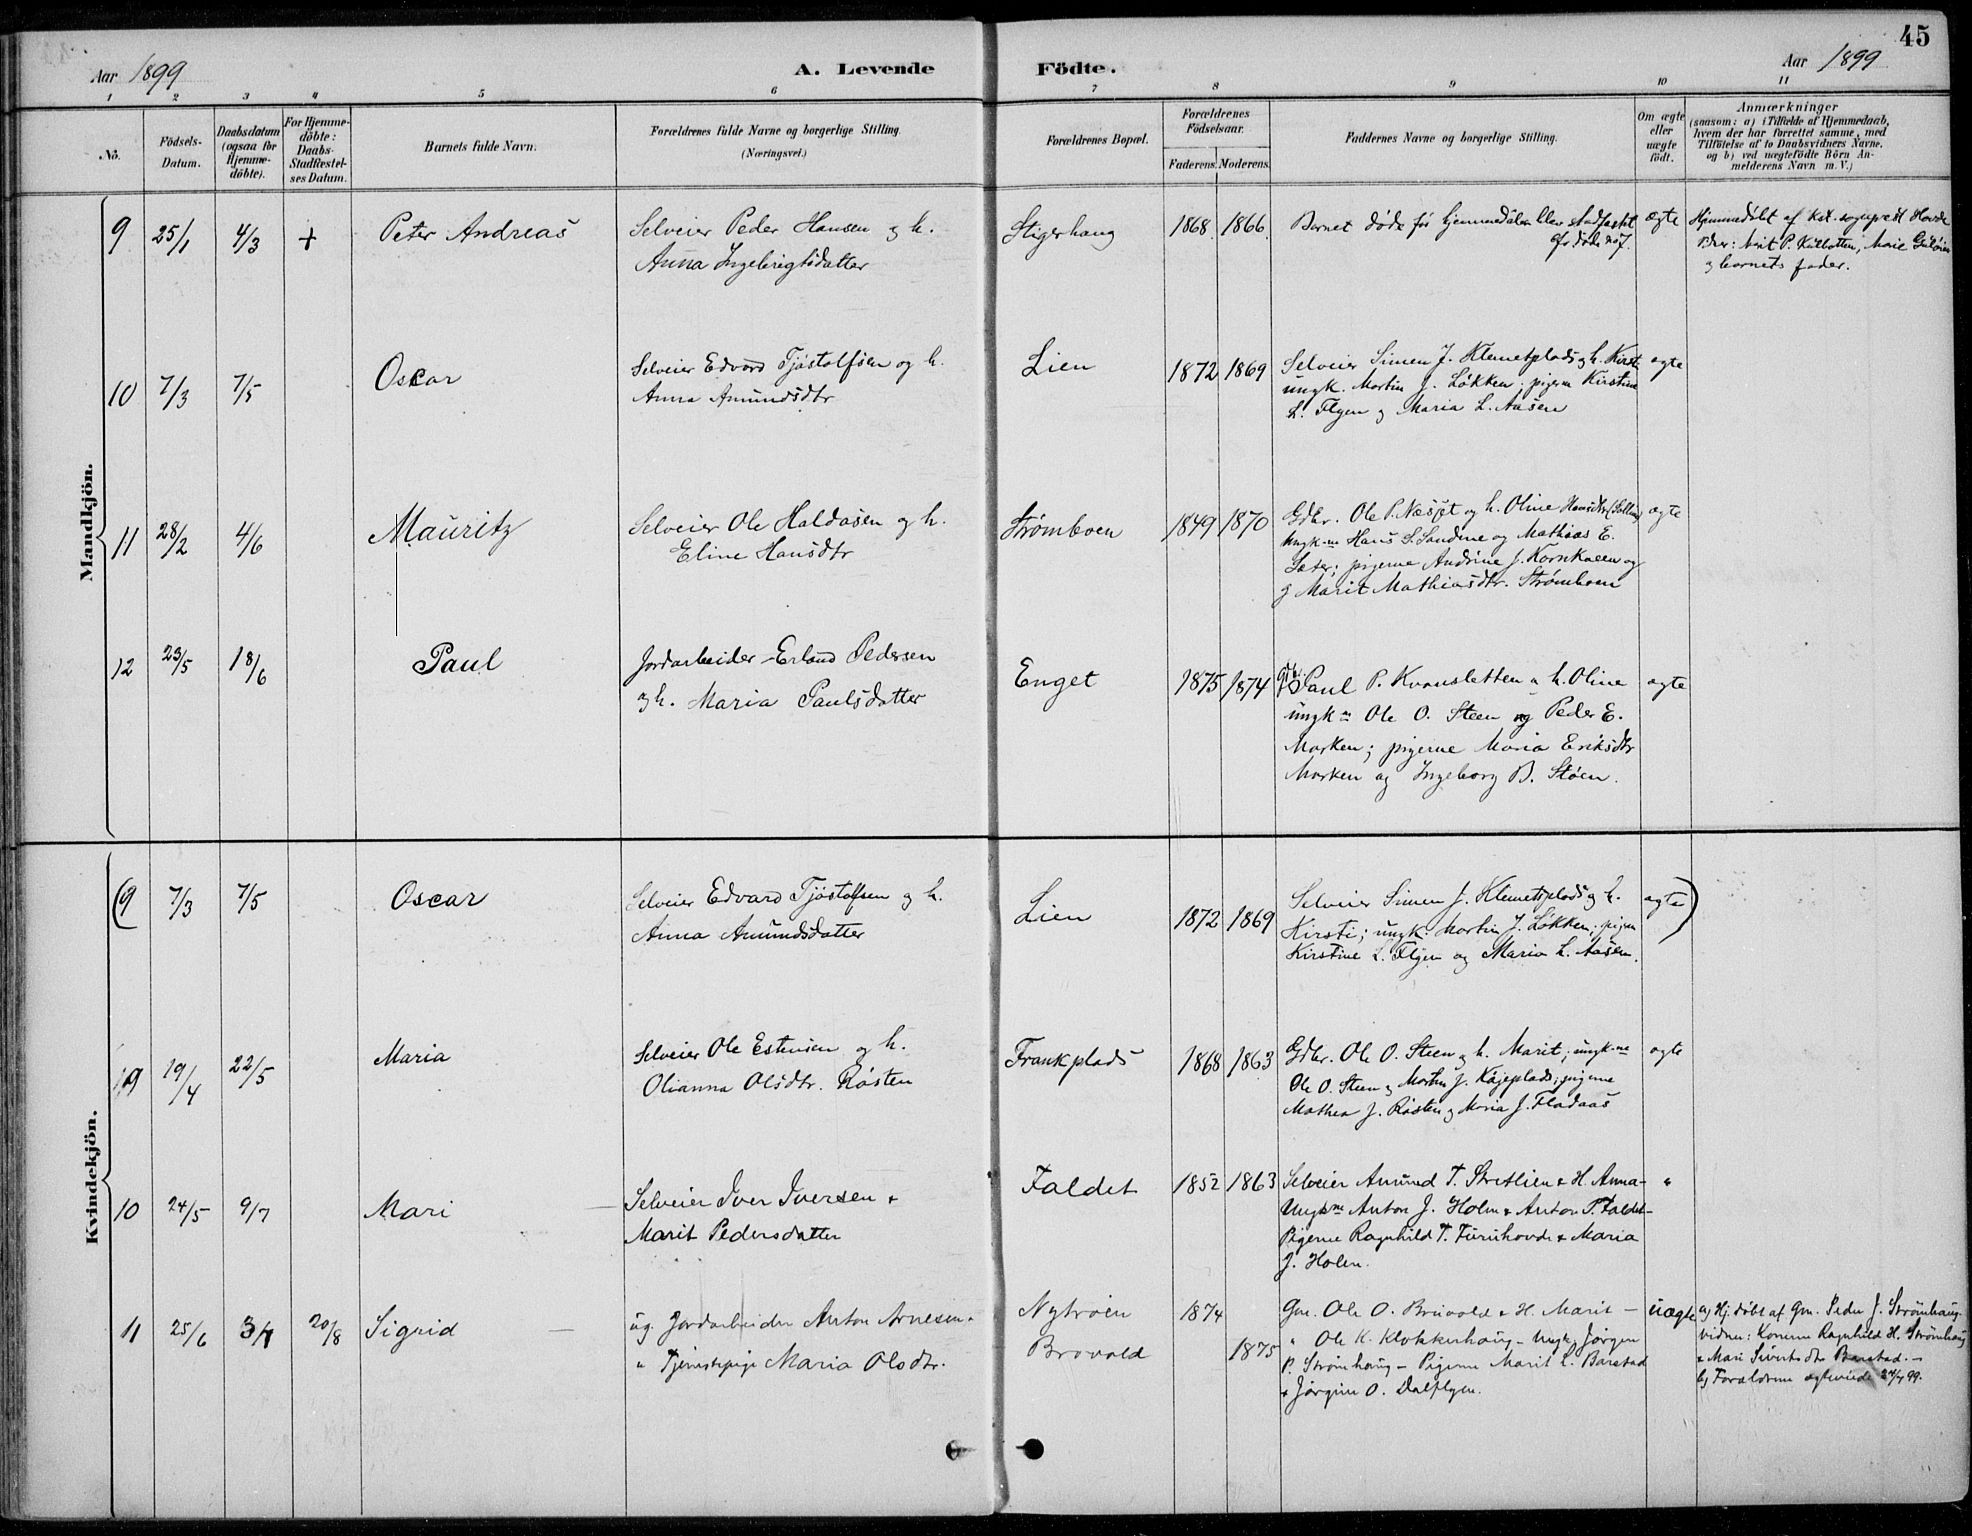 45
Aar 1899
A. Levende
Födte.
Aar 1899
1 2 3 4 5 6 7 8 9 10 11
No.
Födsels-
Datum.
Daabsdatum
(ogsaa för
Hjemme-
döbte).
For Hjemme-
döbte:
Daabs-
Stadfæstel-
ses Datum.
Barnets fulde Navn.
Forældrenes fulde Navne og borgerlige Stilling.
(Næringsvei.)
Forældrenes Bopæl.
Forældrenes
Födselsaar.
Faderens. Moderens.
Faddernes Navne og borgerlige Stilling.
Om ægte
eller
uægte
födt.
Anmærkninger
(saasom: a) i Tilfælde af Hjemmedaab,
hvem der har forrettet samme, med
Tilföielse af to Daabsvidners Navne.
og b) ved uægtefödte Börn An-
melderens Navn m. V.)
Mandkjön.
9 25/1 4/3 + Peter Andreas
Selveier Peder Hansen og h.
Anna Ingebrigtsdatter
Stigerhaug
1868. 1866.
Barnet døde før hjemmedåben blev stadfæstet
cfr døde no 7.
ægte
Hjemmedøbt af kst. sogneprest Hovde
Marit P. Kullotten, Marie
og barnets fader.
10 7/3 7/5 Oscar
Selveier Edvard Tjøstolfsen og h.
Anna Amundsdtr
Lien
1872 1869
Selveier Simen J. Klemetplads og h. Kirsti
ungk. Martin J. Løkken; pigerne Kirstine
L. Flyen og Maria L. Aasen
ægte
11 28/2 4/6 Mauritz
Selveier Ole Haldosen og h.
Eline Hansdtr
Strømboen
1849 1870
Gdbr. Ole P. Næsset og h. Oline Hansdtr
Ungk-ne Hans S. Sandene og Mathias E.
Sæter; pigerne Andrine J. Kornkveen og
og Marit Mathiasdtr. Strømboen
ægte
12 23/5 18/6 Paul
Jordarbeider Erland Pedersen
og h. Maria Paulsdatter
Enget
1875 1874
Paul P. Kvansletten & h. Oline
ungk-ne Ole O. Steen og Peder E.
Morken; pigerne Maria Eriksdtr
Morken og Ingeborg B. Støen.
ægte
Kvindekjön.
(9 7/3 7/5 Oscar
Selveier Edvard Tjøstolfsen og h.
Anna Amundsdatter
Lien
1872 1869
Selveier Simen J. Klemetsplads og h.
Kirsti; ungk. Martin J. Løkken; pigerne
Kirstine L. Flyen og Maria L. Aasen.
ægte)
9 19/4 22/5 Maria
Selveier Ole Estensen og h.
Olianna Olsdtr. Røsten
Frankplads
1868 1863
Gdbr. Ole O. Steen og h. Marit; ungk-ne
Ole O. Steen og Morten J. Køjeplads; pigerne
Mathea J. Røsten og Maria J. Fladaas
ægte
10 24/5 9/7 Mari
Selveier Iver Iversen &
Marit Pedersdatter
Faldet
1852 1863
Selveier Amund T. Stretlien & H. Anna-
Ungk-ne Anton J. Holen & Anton P. Faldet-
Pigerne Ragnhild T. Furuhovde & Maria
J. Holen.
"
11 25/6 3/7 20/8 Sigrid
ug. Jordarbeider Anton Arnesen &
" Tjenestepige Maria Olsdtr.
Nytrøen
Brovold
1874
1875
Gm. Ole O. Bruvold & H. Marit -
" Ole K. Klokkerhaug - Ungk. Jørgen
P. Strømhaug - Pigerne Marit L. Barstad
& Jørgine O. Dalflyen.
uægte
a) Hj.døbt af Gm. Peder J. Strømhaug
vidner: Konerne Ragnhild H. Strømhaug
& Mari Sivertsdtr Barstad. -
b) Forældrene ægteviede 24/7 99.